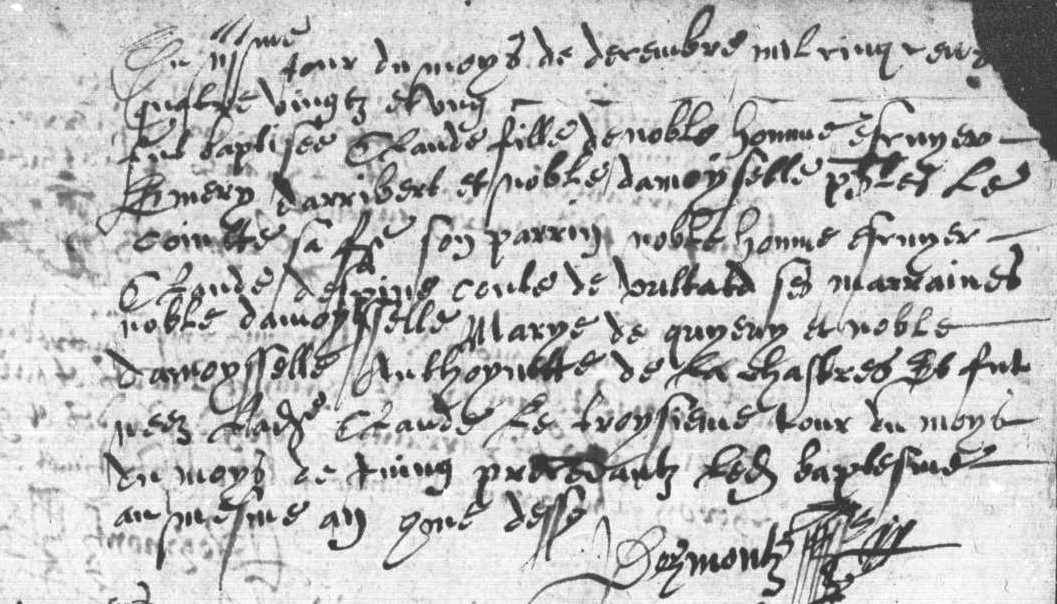 Du iiij eme jour du moys de decembre mil cinq cens
quatre vingtz et ung
fut baptisée Claude fille de noble homme escuyer
Emery darribert et noble damoyselle Le
cointte sa fe son parrin noble homme escuyer
Claude despine conte de ses marraines
noble damoysselle Marye de et noble
damoysselle Anthoynette de La Chastres Et fut
neez Lade Claude Le troysieme jour du moys
du moys de juing precedantz Led baptesme
au mesme an que desss
Dezmontz